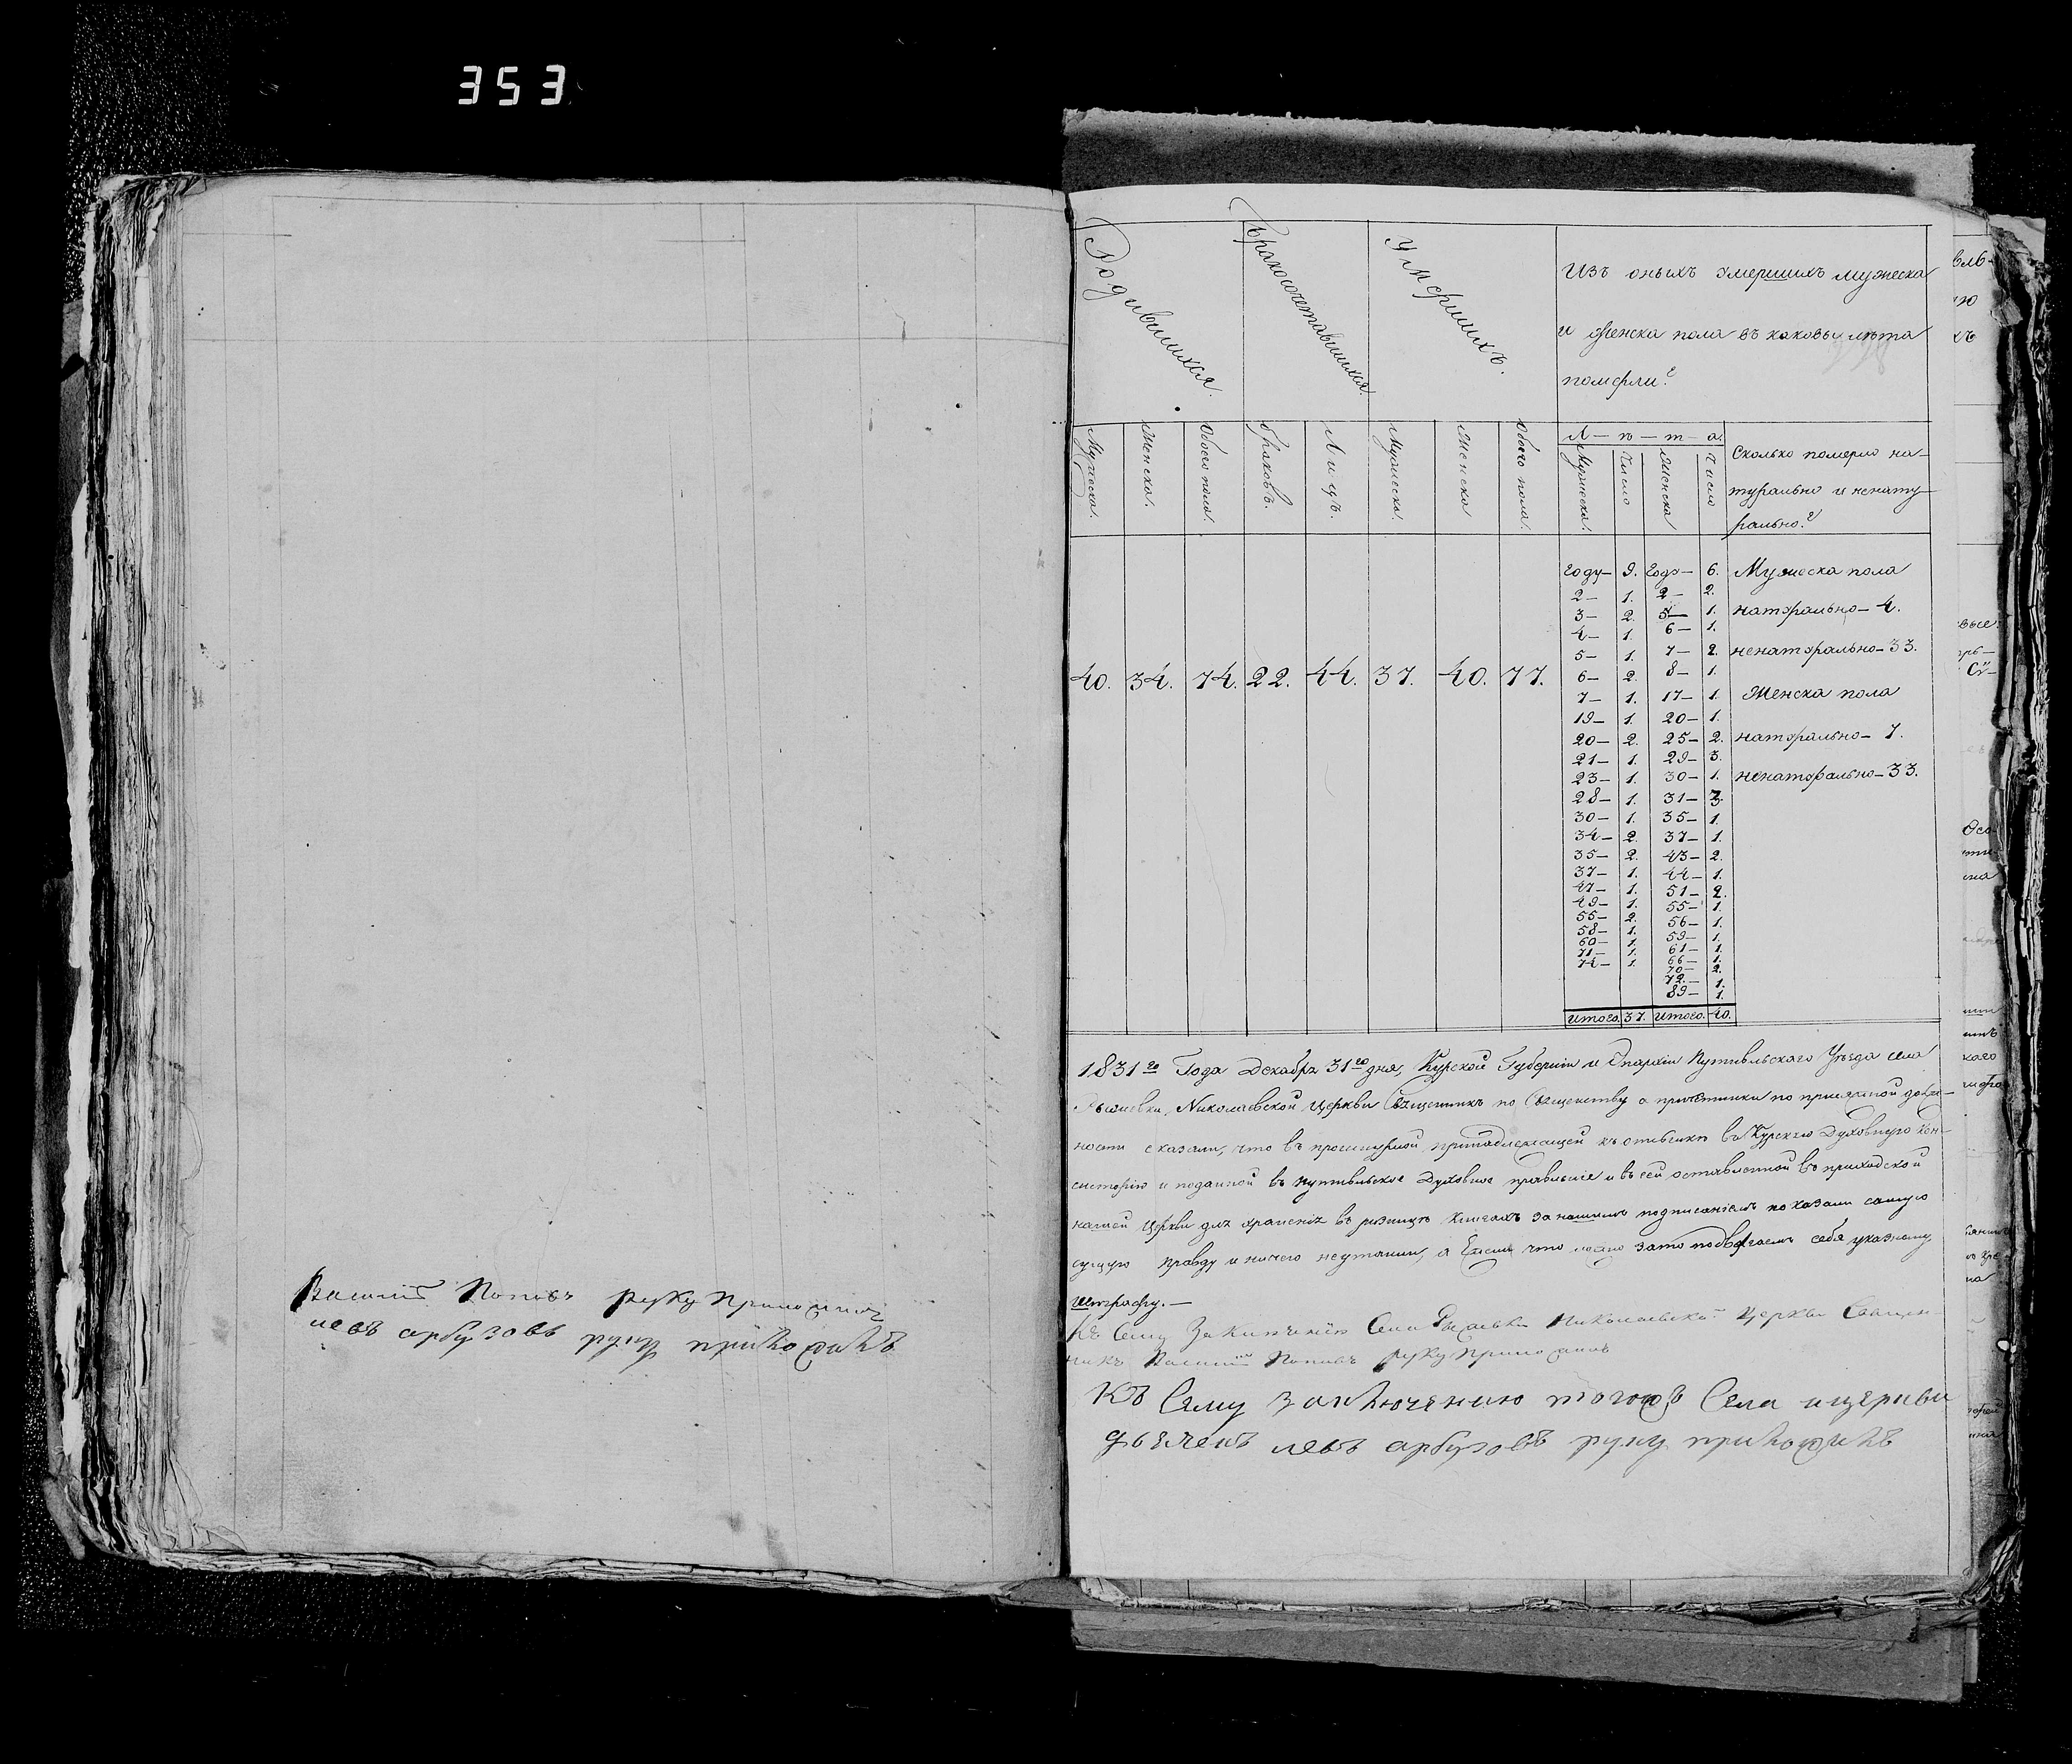 353
Василий Поповъ руку приложилъ
левъ арбузовъ руку приложилъ
Родившихся.
Бракосочетавшихся.
Умершихъ.
Изъ оныхъ умершихъ мужеска
и женска пола въ каковы лѣта
померли?
Мужеска.
Женска.
Обоего пола.
Браковъ.
Лицъ.
Мужеска.
Женска
Обоего пола.
Л — ѣ — т — а.
Мужеска.
Число
Женска
Число
Сколько померло на-
турально и ненату-
рально?
40. 34. 74. 22. 44. 37. 40. 77.
году— 9. года— 6.
2— 1. 2— 2.
3— 2. 5— 1.
4— 1. 6— 1.
5— 1. 7— 2.
6— 2. 8— 1.
7— 1. 17— 1.
19— 1. 20— 1.
20— 2. 25— 2.
21— 1. 29— 3.
23— 1. 30— 1.
28— 1. 31— 3.
30— 1. 35— 1.
34— 2. 37— 1.
35— 2. 43— 2.
37— 1. 44— 1.
47— 1. 51— 2.
49— 1. 55— 1.
55— 2. 56— 1.
58— 1. 59— 1.
60— 1. 61— 1.
71— 1. 66— 1.
74— 1. 70— 2.
72.— 1.
89— 1.
Итого. 37. Итого. 40.
Мужеска пола
натурально— 4.
ненатурально— 33.
Женска пола
натурально— 7.
ненатурально— 33.
1831го Года Декабря 31го дня, Курской Губерніи и Епархіи Путивльскаго Уѣзда села
Николаевской Церкви Священникъ по Священству а причетники по присяжной долж-
ности сказали, что въ прошнурной принадлежащей къ отсылкѣ въ Курскую Духовную Кон-
систорію и поданной въ Путивльское Духовное правленіе и въ сей оставленной въ приходской
нашей Церкви для храненія въ ризницѣ книгахъ за нашимъ подписаніемъ показали самую
сущую правду и ничего неутаили, а Ежели что ложно зато подвергаемъ себя указному
штрафу.—
Къ Сему Заключенію Села Николаевской Церкви Священ-
никъ Василий Поповъ руку приложилъ
Къ Сему заключению тогожъ Села и церкви
дьячекъ левъ арбузовъ руку приложилъ